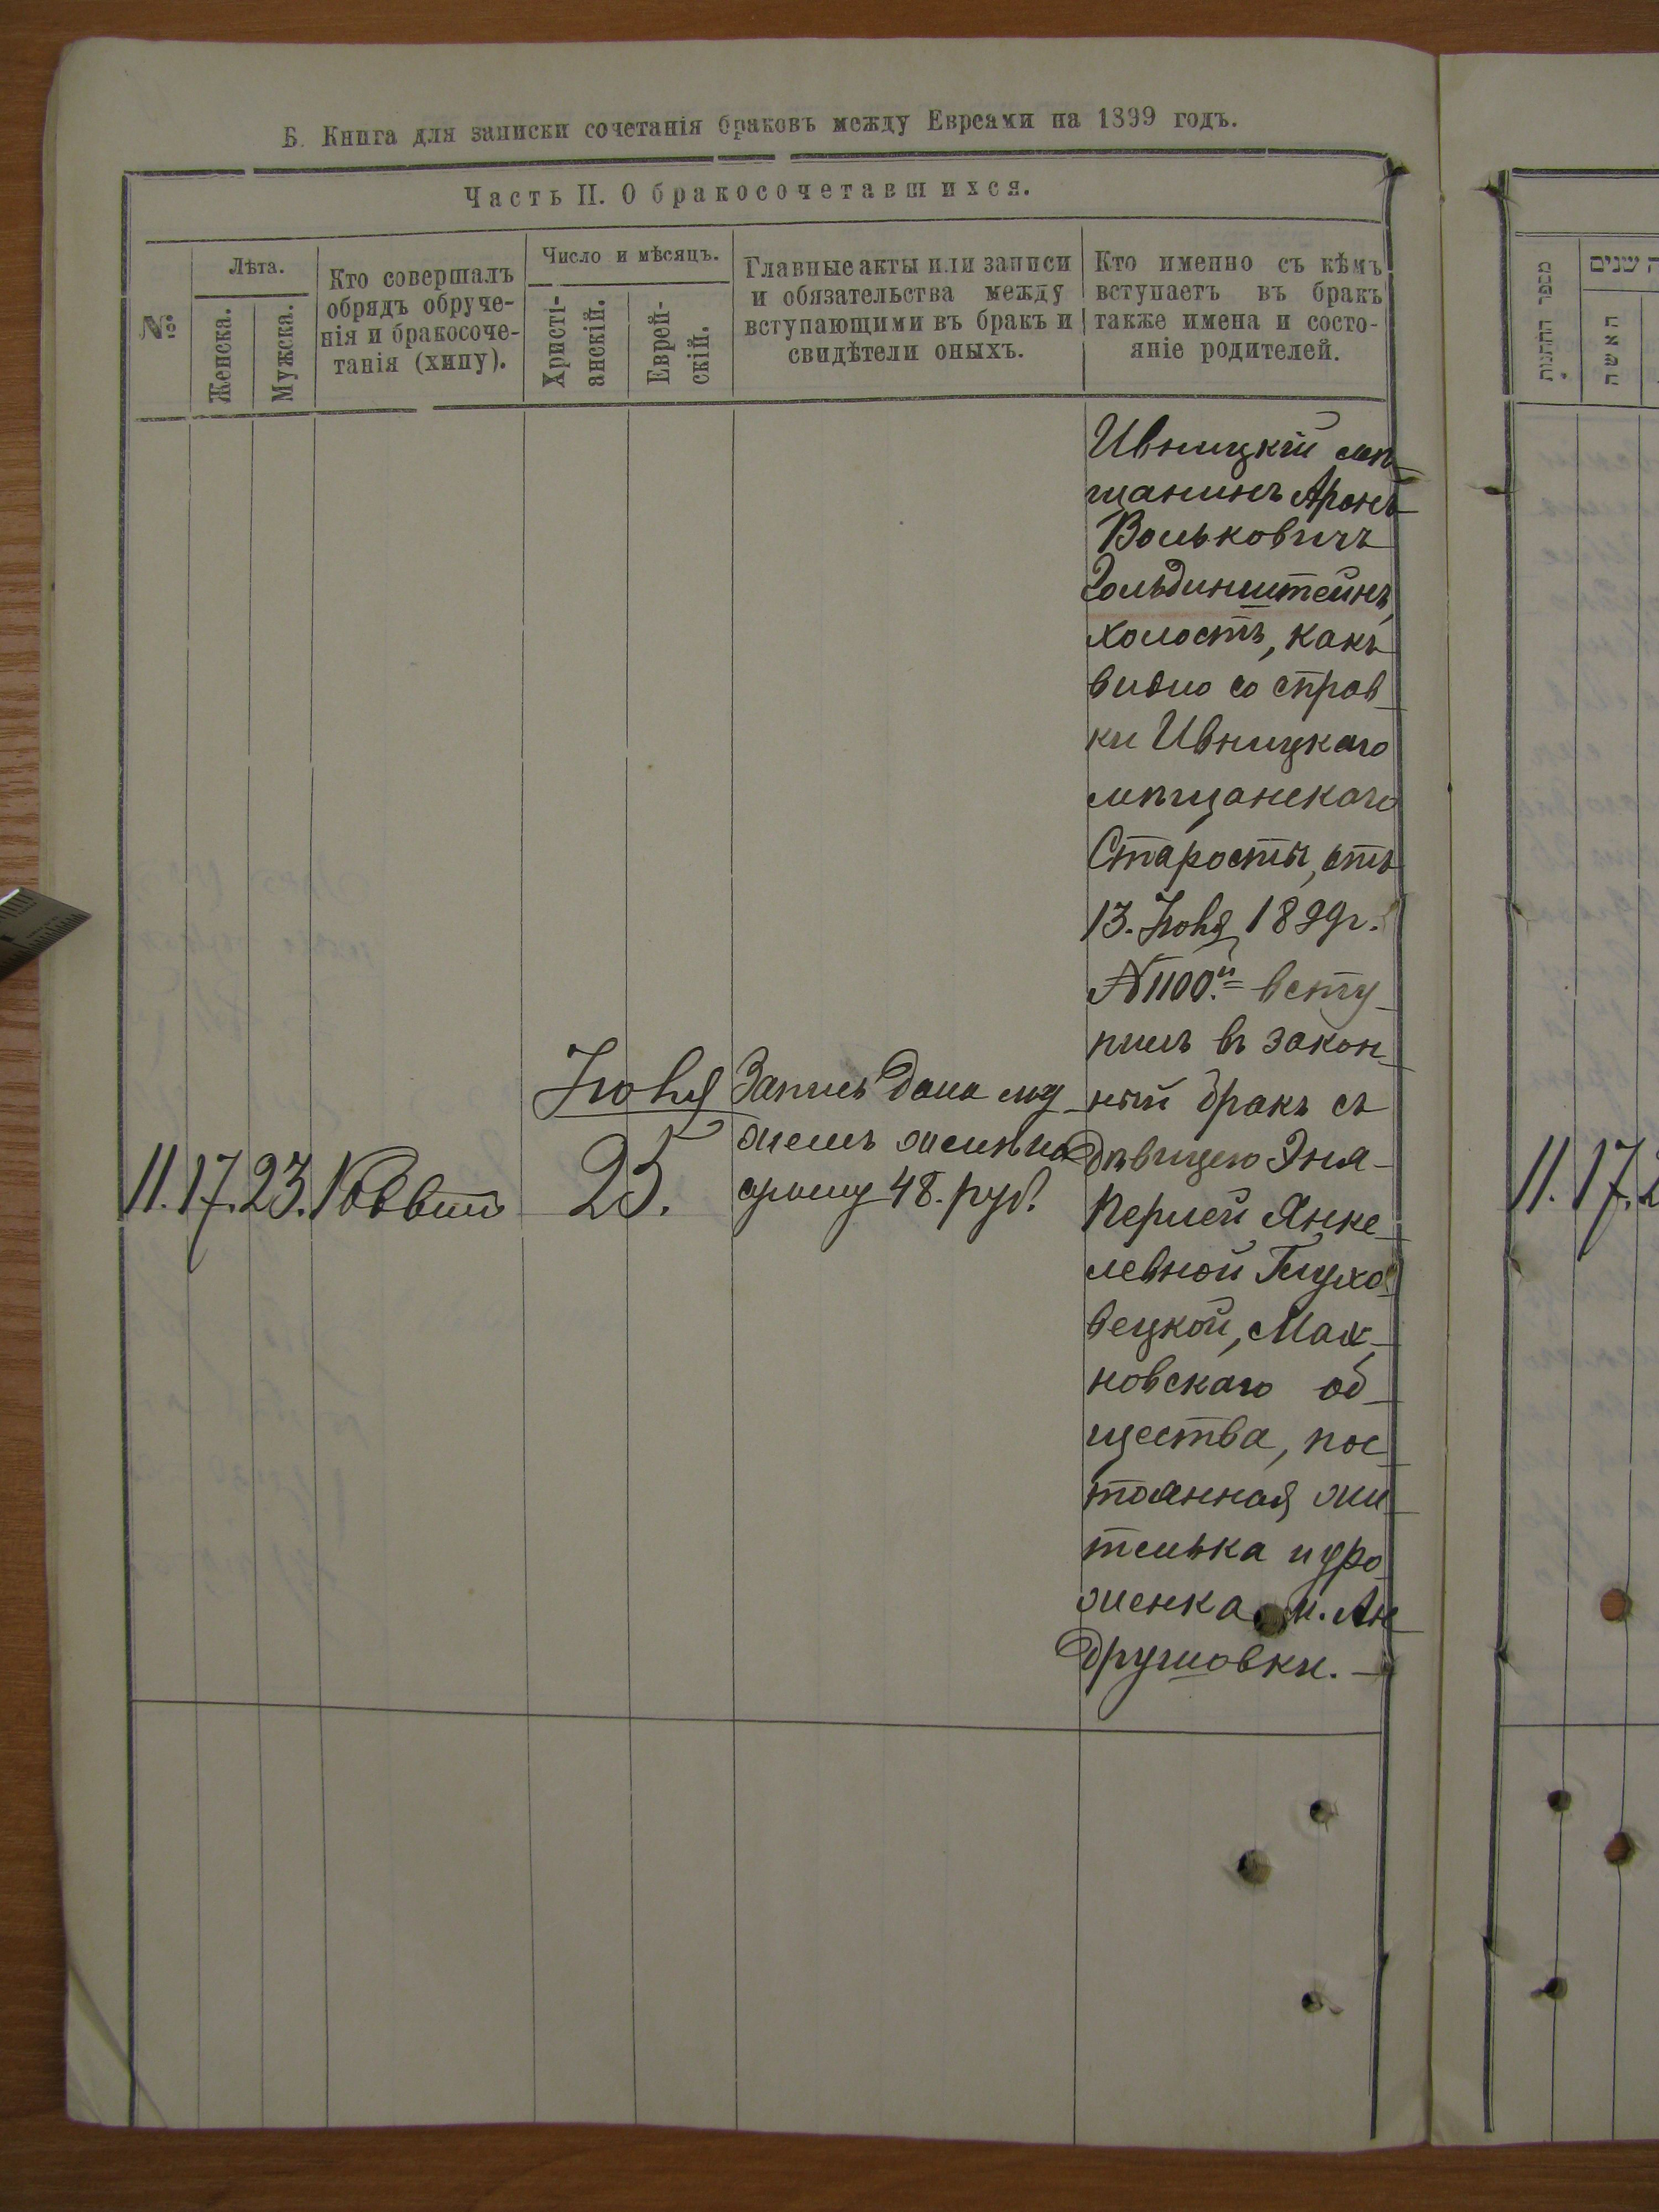 Б. Книга для записки сочетанія браковъ между Евреами на 1899 годъ.
Часть II. О бракосочетавшихся.
№
Лѣта.
Женска.
Мужска.
Кто совершалъ
обрядъ обруче-
нія и бракосоче-
танія (хипу).
Число и мѣсяцъ.
Христі-
анскій.
Еврей-
скій.
Главные акты или записи
и обязательства между
вступающими въ бракъ и
свидѣтели оныхъ.
Кто именно съ кѣмъ
вступаетъ въ бракъ
также имена и состо-
яніе родителей.
11. 17. 23. Раввинъ
Іюня
25.
Запись дана му
жемъ женѣ на
сумму 48. руб.
Ивницкій мѣ-
щанинъ Аронъ
Вольковичъ
Гольдинштейнъ,
холостъ, какъ
видно со справ-
ки Ивницкаго
мѣщанскаго
Старосты, отъ
13. Іюня 1899г.
№1100.й= всту-
пилъ въ закон-
ный бракъ съ
дѣвицею Эня-
Перлей Янке-
левной Глухо-
вецкой, Мах-
новскаго об-
щества, пос-
тоянная жи-
телька и уро-
женка м. Ан-
друшовки. —
מספר החתונות
שנים
האשה
11. 17.